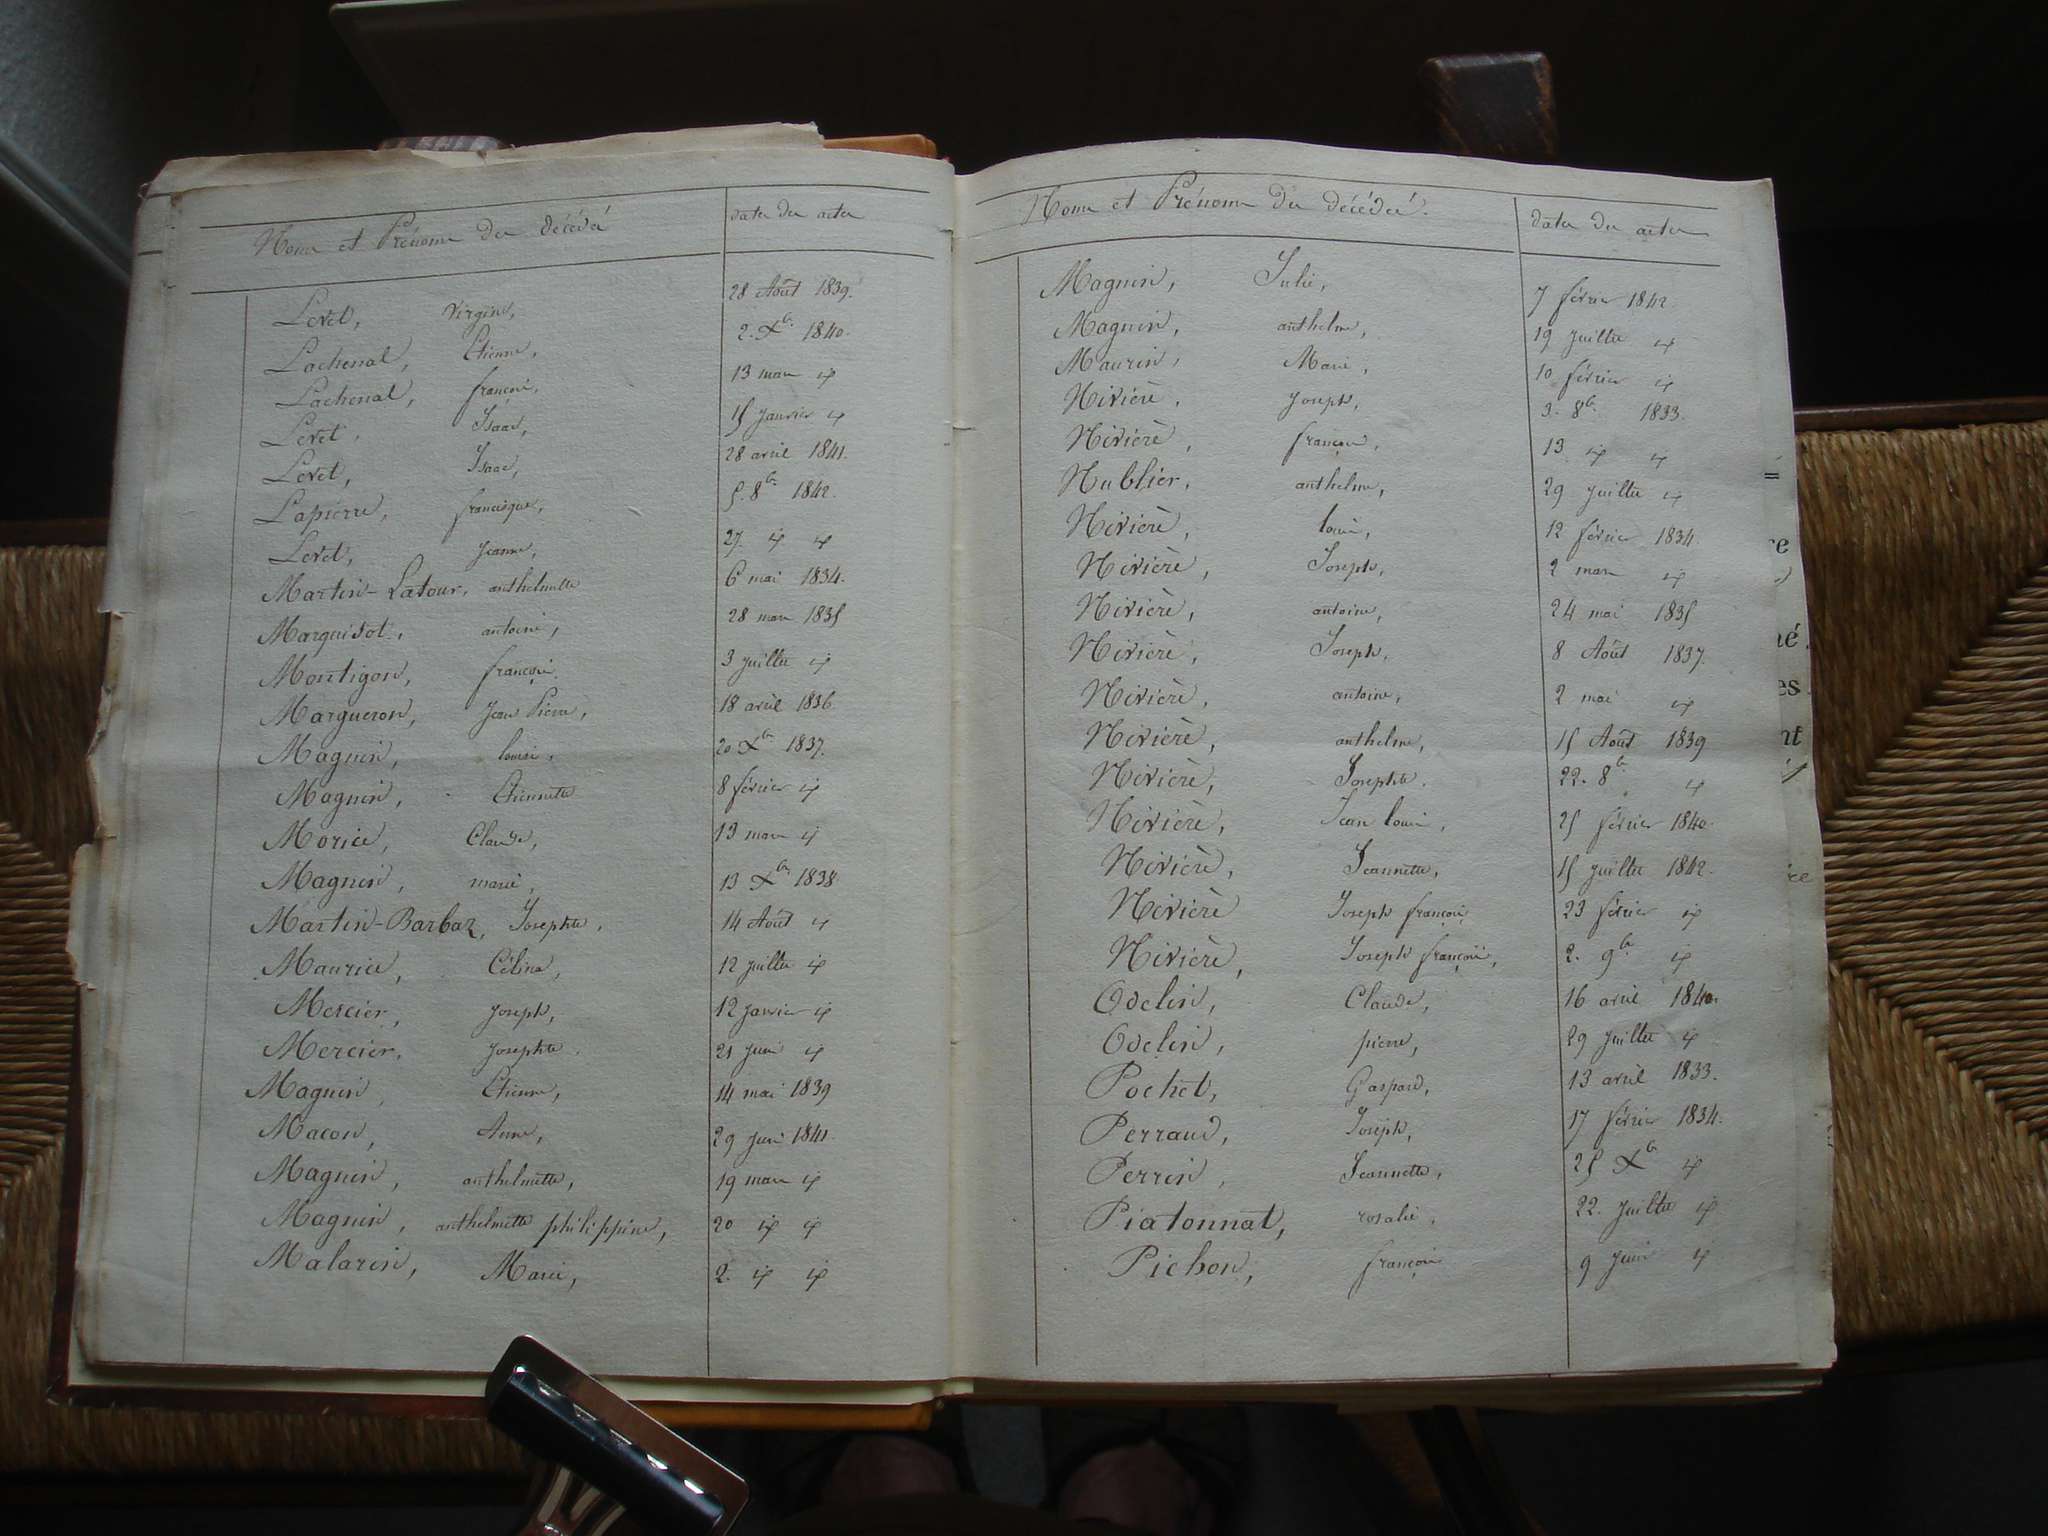 Noms et Prénoms des décédés
dates des actes
Levet, Virginie, 28 Août 1839.
Lachenal, Etienne, 2. Xbre 1840.
Lachenal, françois, 13 mars id
Levet, Isaac, 15 janvier id
Levet, Isaac, 28 avril 1841.
Lapierre, francisque, 5. 8bre 1842.
Levet, Jeanne, 27. id id
Martin-Latour, anthelmette 6 mai 1834.
Marquisot, antoine, 28 mars 1835
Montigon, françois 3 juillet id
Margueron, Jean Pierre, 18 avril 1836
Magnin, louise, 20. Xbre 1837.
Magnin, Etiennette 8 février id
Morice, Claude, 13 mars id
Magnin, marie, 13 Xbre 1838
Martin-Barbaz, Josephte, 14 Août id
Maurice, Célina, 12 juillet id
Mercier, joseph, 12 janvier id
Mercier, josephte. 21 juin id
Magnin, Etienne, 14 mai 1839
Macon, Anne, 29 juin 1841.
Magnin, anthelmette, 19 mars id
Magnin, anthelmette philippine, 20 id id
Malarin, Marie, 2. id id
Noms et Prénoms des décédés.
dates des actes
Magnin, Julie, 7 février 1842
Magnin, anthelme, 19 juillet id
Maurin, Marie, 10 février id
Nivière, Joseph, 3. 8bre 1833.
Nivière, françois, 13 id id
Nublier, anthelme, 29 juillet id
Nivière, louis, 12 février 1834
Nivière, Joseph, 2 mars id
Nivière, antoine, 24 mai 1835
Nivière, Joseph, 8 Août 1837.
Nivière, antoine, 2 mai id
Nivière, anthelme, 15 Août 1839
Nivière, Josephte. 22. 8bre id
Nivière, Jean louis, 25 février 1840.
Nivière, Jeannette, 15 juillet 1842.
Nivière Joseph françois 23 février id
Nivière, Joseph françois, 2. 9bre id
Odelin, Claude, 16 avril 1840.
Odelin, pierre, 29 juillet id
Pochet, Gaspard, 13 avril 1833.
Perraud, Joseph, 17 février 1834.
Perrin, Jeannette, 25 Xbre id
Piatonnat, rosalie, 22. juillet id
Pichon, françois 9 juin id